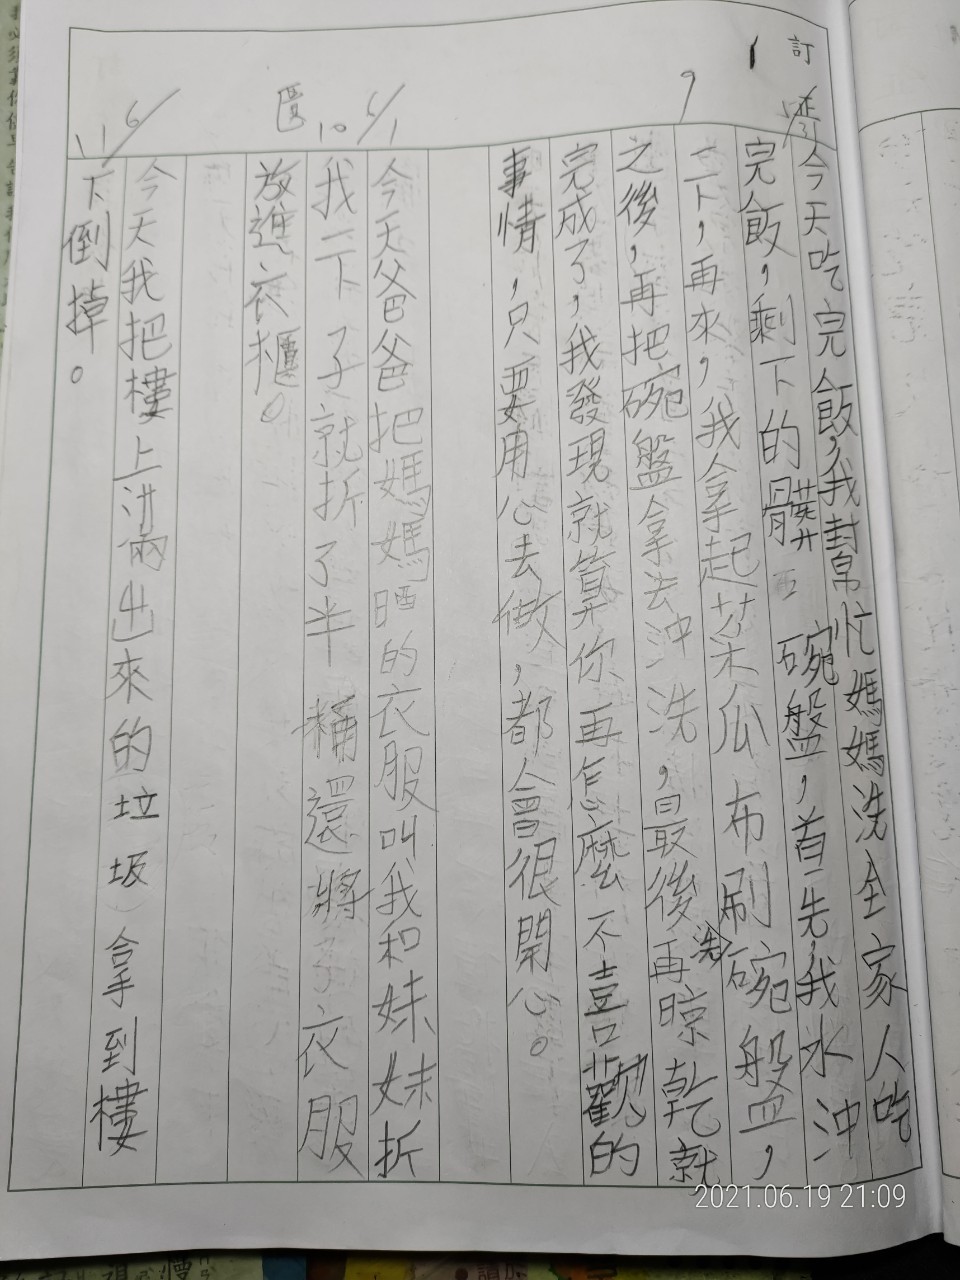 訂
今天吃完飯,我幫忙媽媽洗全家人吃
完飯,剩下的髒碗盤,首先,我水沖
一下,再來,我拿起菜瓜布刷碗盤,
之後,再把碗盤拿去沖洗,最後再晾乾就
完成了,我發現就算你再怎麼不喜歡的
事情,只要用心去做,都會很開心。
9
10 6/1
今天爸爸把媽媽晒的衣服叫我和妹妹折
我一下子就折了半桶還將衣服
放進衣櫃。
11 6/
今天我把樓上清出來的垃圾拿到樓
下倒掉。
2021.06.19 21:09